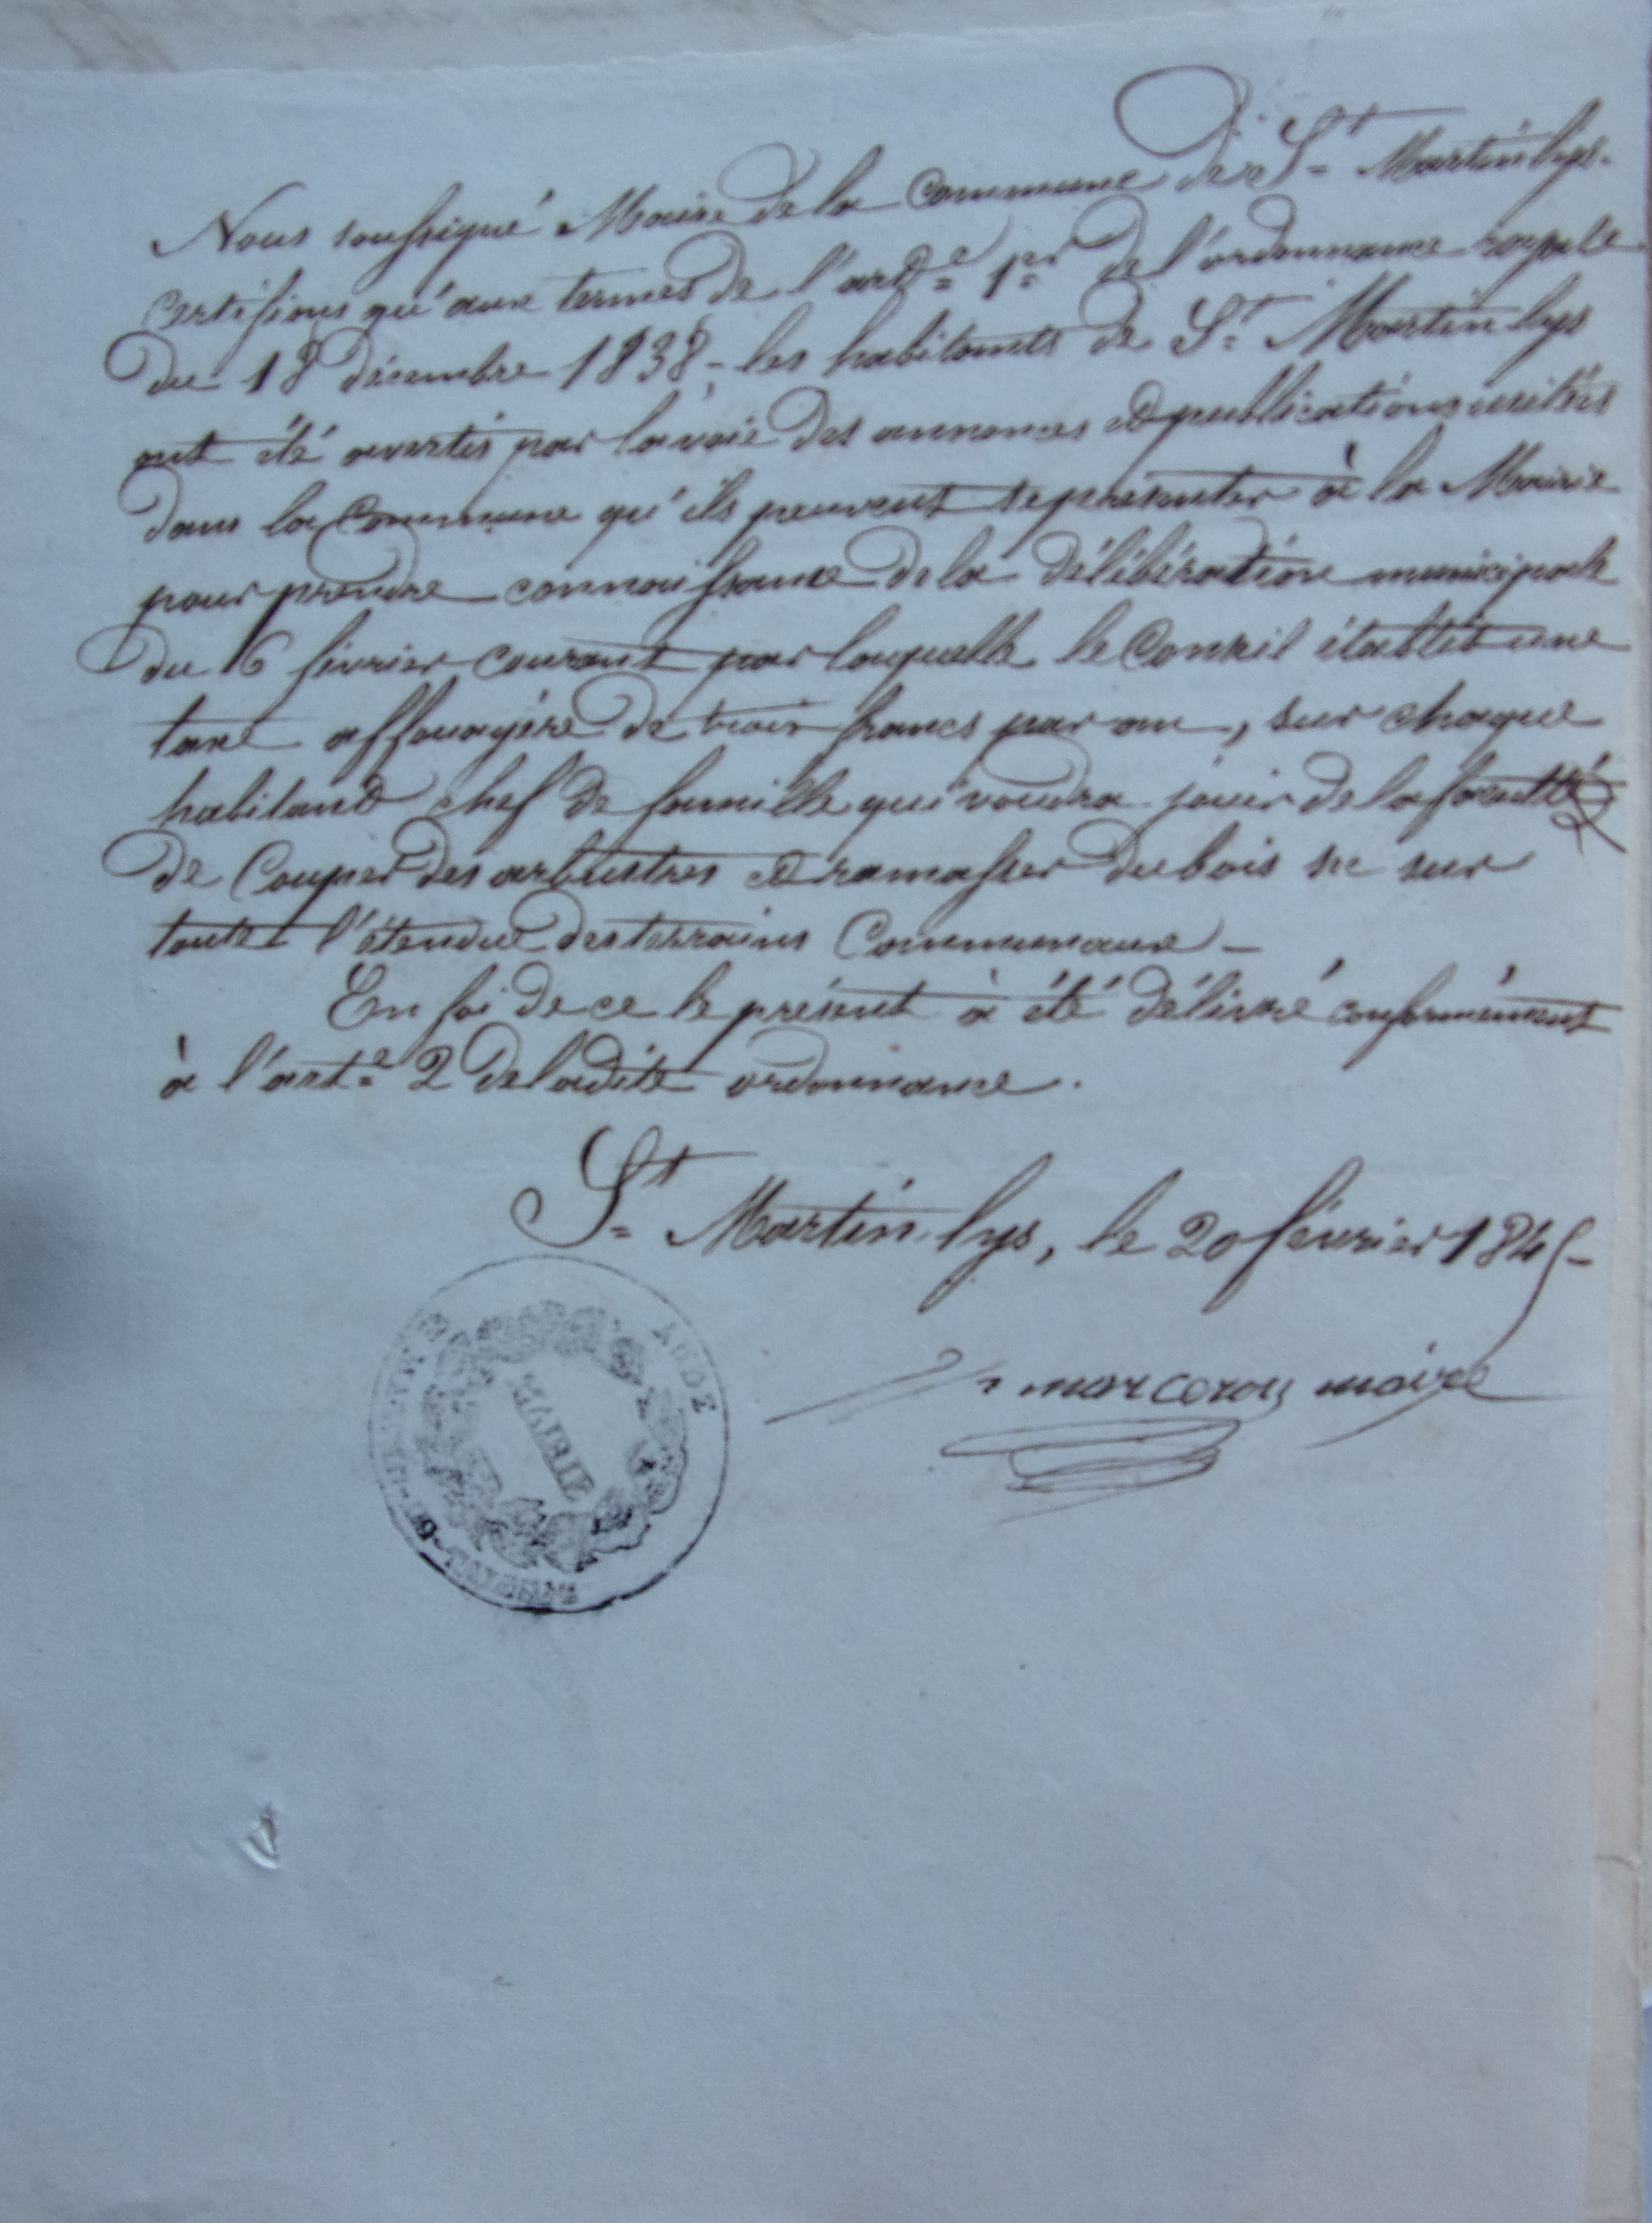 Nous soussigné Maire de la Commune de St Martin lys.
Certifions qu'aux termes de l'arte 1er de l'ordonnance royale
du 18 décembre 1838, les habitants de St Martin lys
ont été avertis par la voie des annonces et publications usitées
dans la Commune qu'ils peuvent se présenter à la Mairie
pour prendre connaissance de la délibération municipale
du 6 février courant par laquelle le Conseil établit une
taxe affouagère de trois francs par an, sur chaque
habitant chef de famille qui voudra jouir de la faculté
de Couper des arbustres et ramasser du bois sec sur
toute l'étendue des terrains Communaux -
En foi de ce le présent à été délivré conformément
à l'arte 2 de ladite ordonnance.
St Martin lys, le 20 février 1845 -
marcerou maire
AUDE
MAIRIE